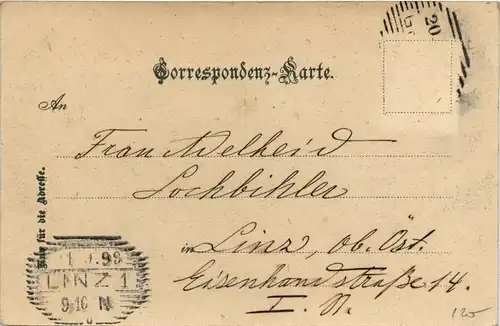 20
Correspondenz-Karte.
An
Frau Adelheid
Lochbihler
in Linz, ob. Öst.
Eisenhandstraße 14.
I. N.
Nur für die Adresse.
LINZ 1
120